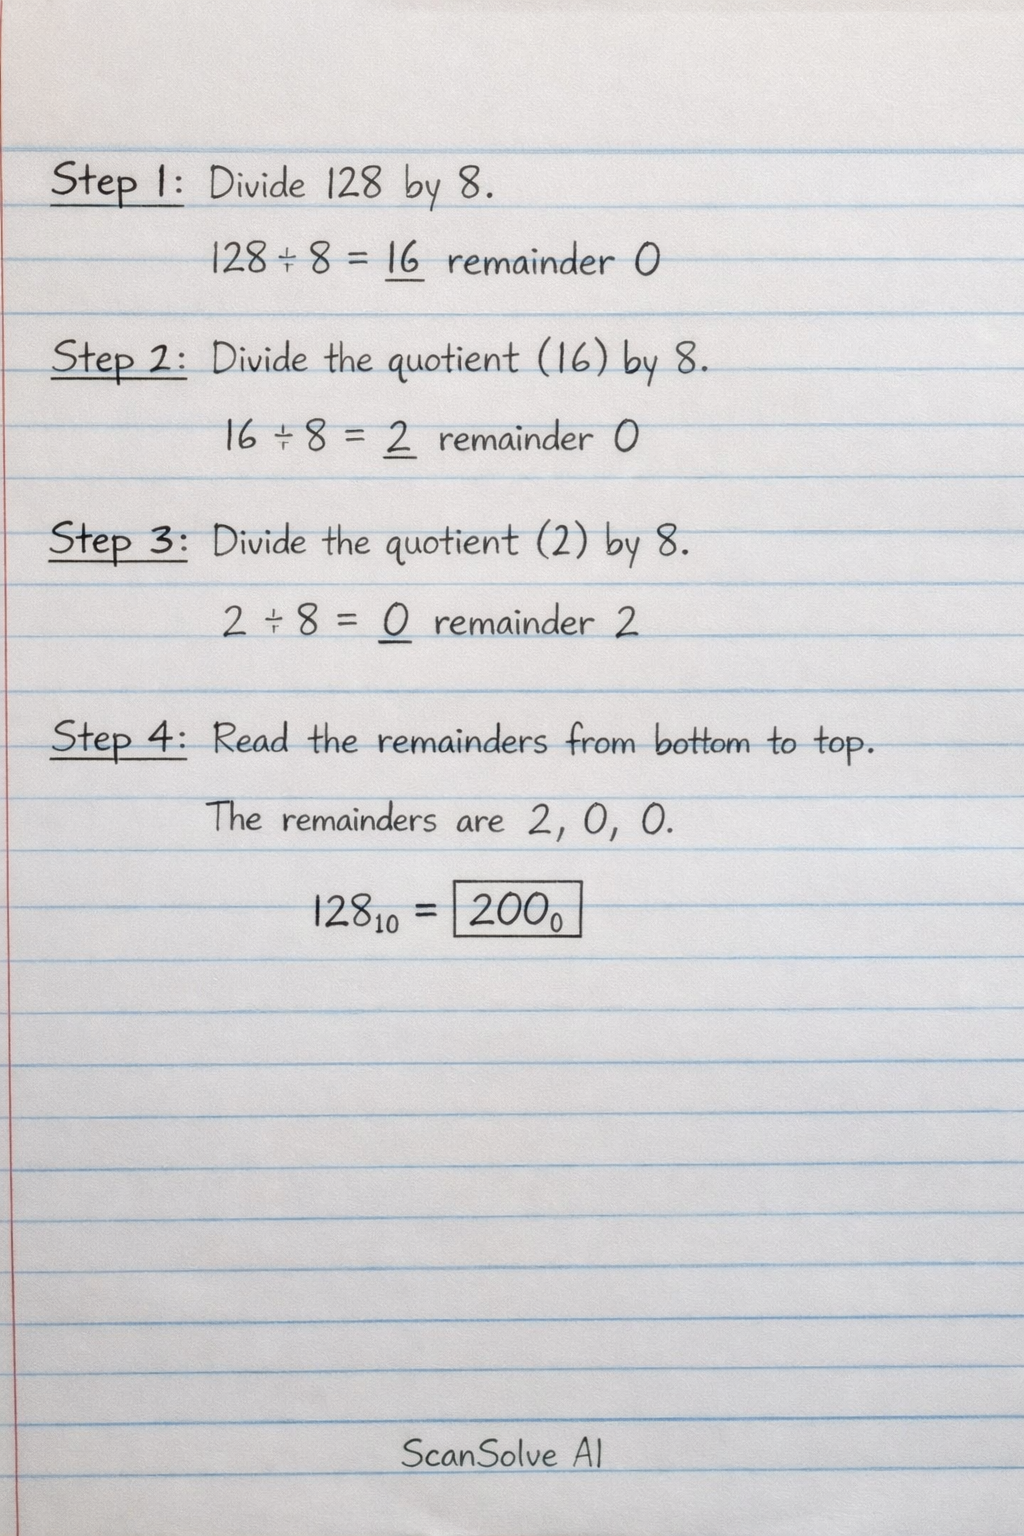 Step 1: Divide 128 by 8.
128 ÷ 8 = 16 remainder 0
Step 2: Divide the quotient (16) by 8.
16 ÷ 8 = 2 remainder 0
Step 3: Divide the quotient (2) by 8.
2 ÷ 8 = 0 remainder 2
Step 4: Read the remainders from bottom to top.
The remainders are 2, 0, 0.
128₁₀ = 200₀
ScanSolve AI